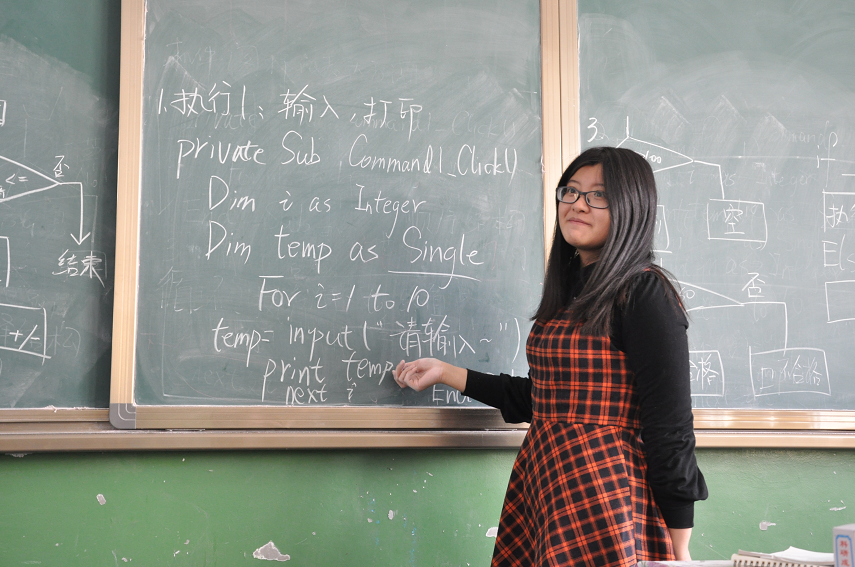 否
<=
结束
+/-
1.执行1:输入,打印
private Sub Command1_Click()
Dim i as Integer
Dim temp as Single
For i=1 to 10
temp= input("请输入~")
print temp
next i
3.
空
否
合格
if
执